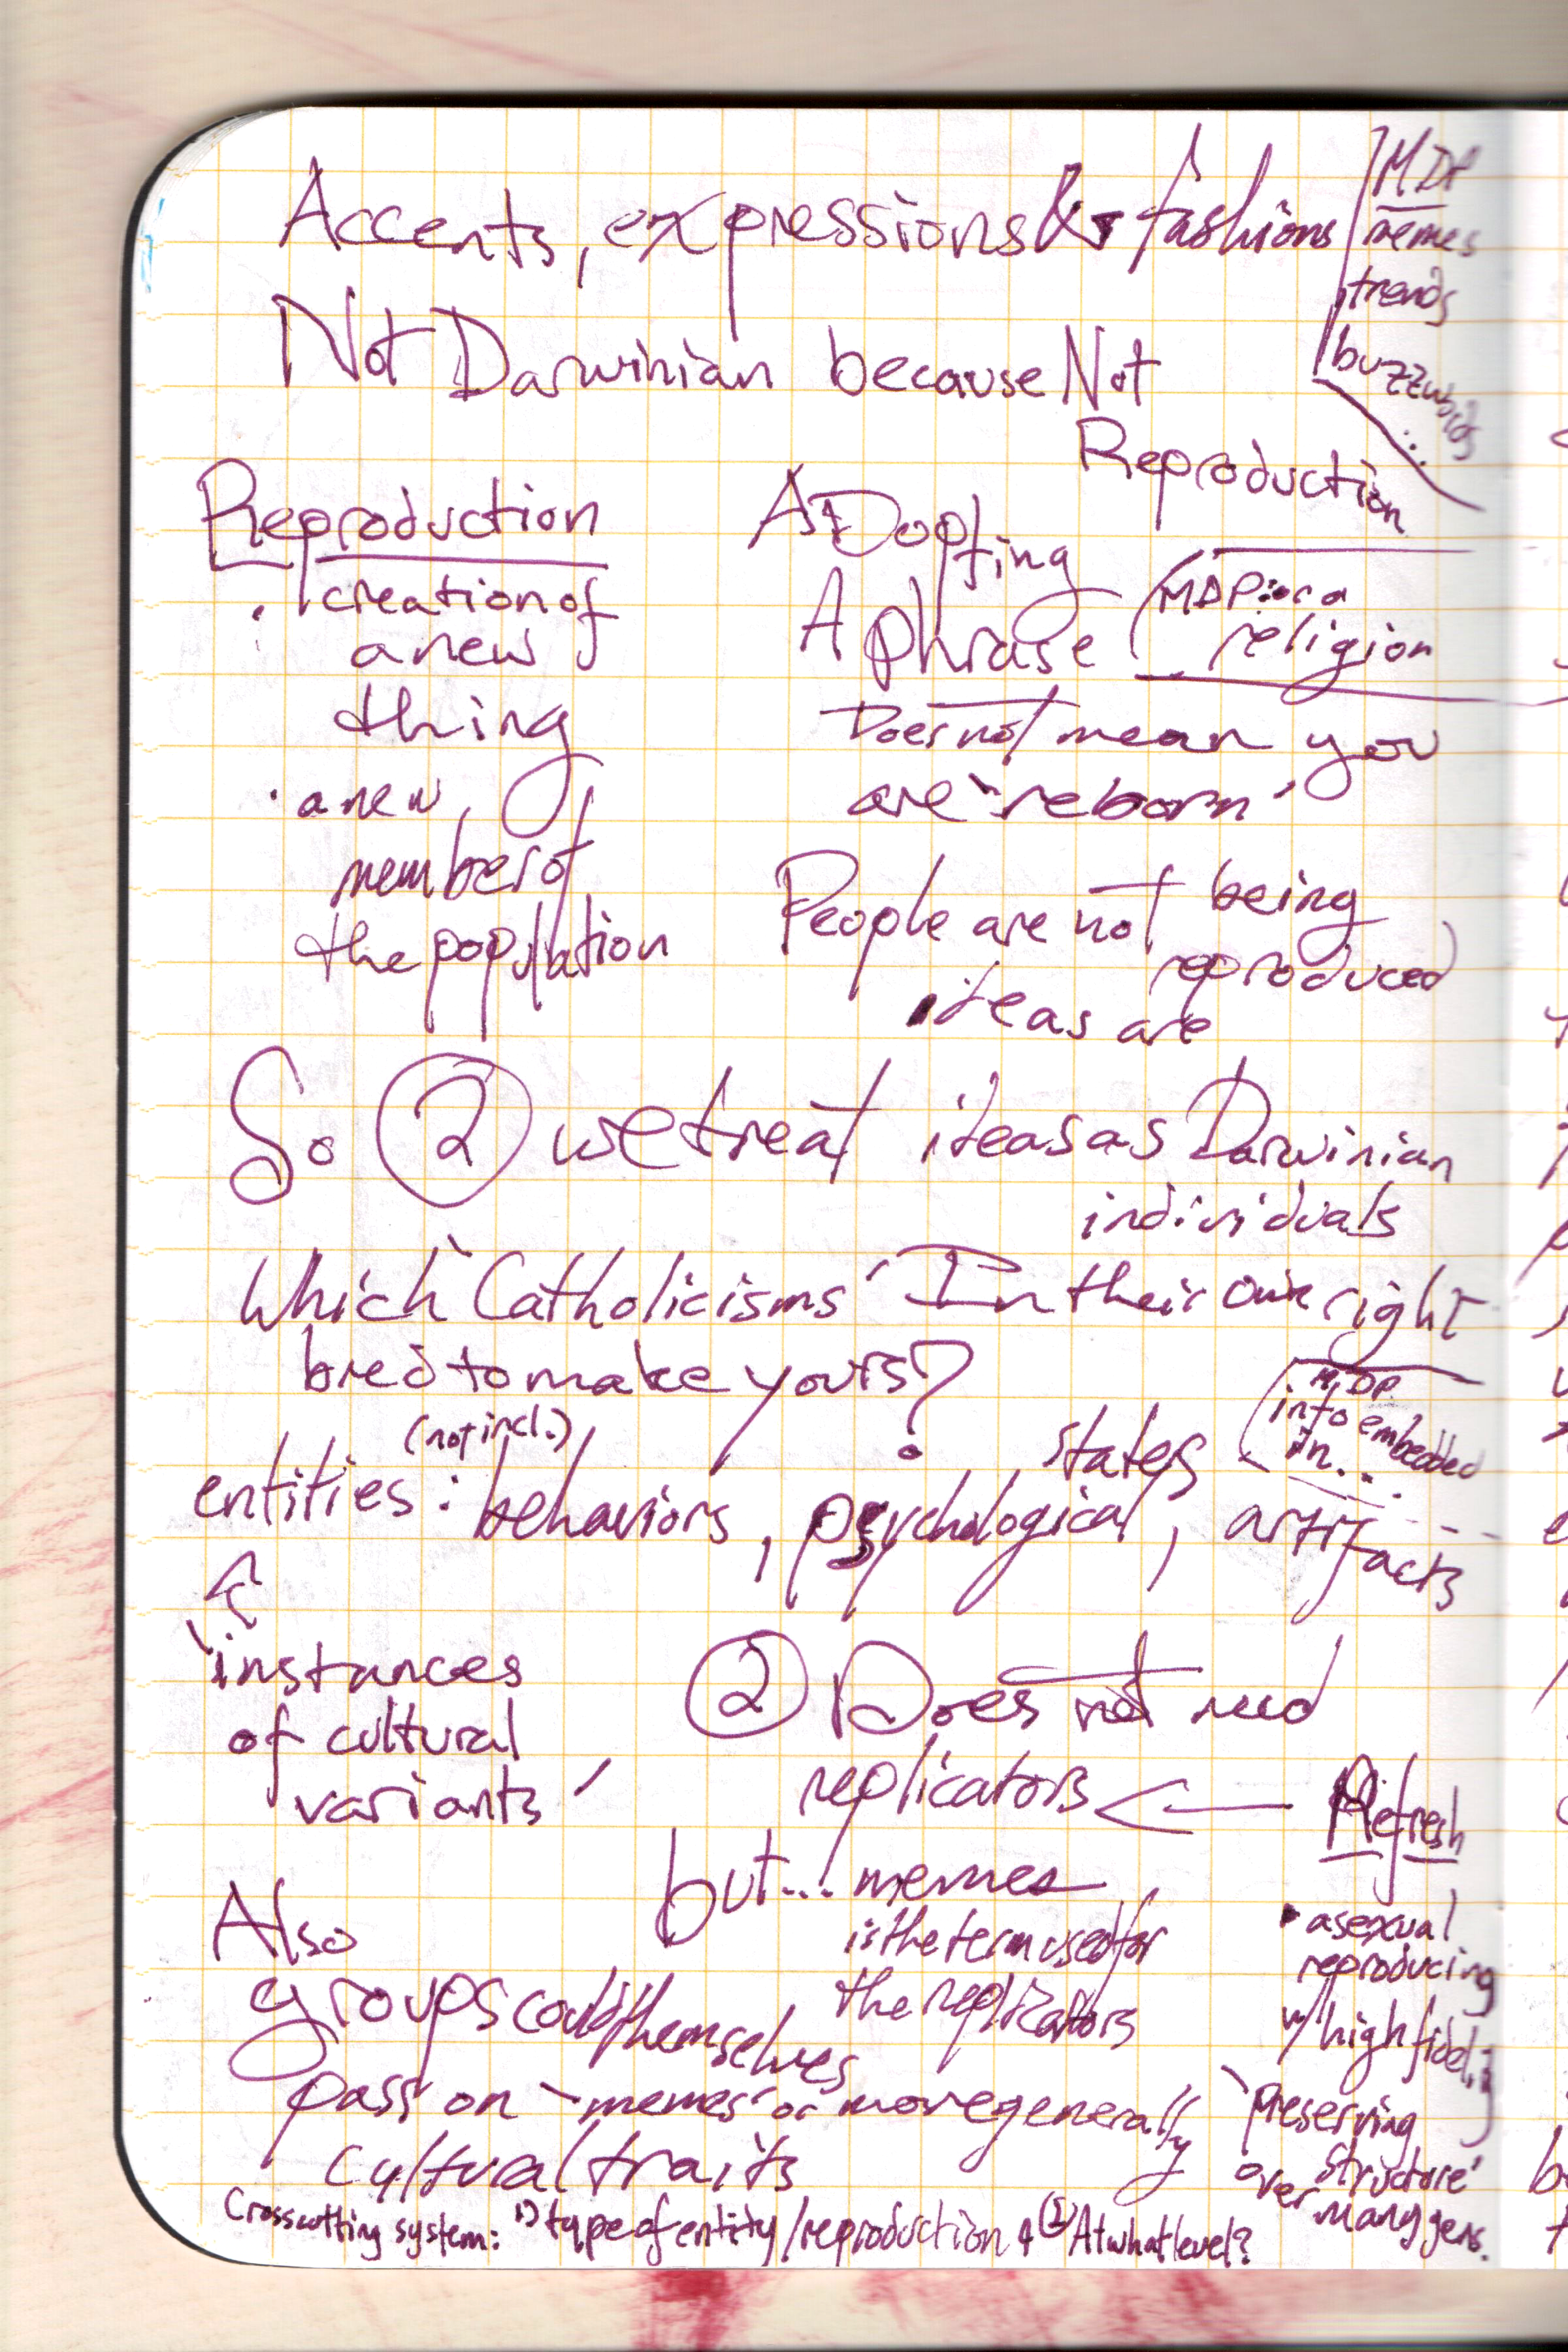 Accents, expressions & fashions
MDP
memes
trends
buzzwords
...
Not Darwinian because Not
Reproduction
Reproduction
· creation of
a new
thing
· a new
member of
the population
ADopting
A phrase
(MDP: or a
religion
Does not mean you
are "reborn"
People are not being
reproduced
ideas are
So ② we treat ideas as Darwinian
individuals
Which "Catholicisms" In their own right
bred to make yours?
(MDP
into embedded
in...
(not incl.)
entities: behaviors, psychological states, artifacts
"instances
of cultural
variants"
② Does not need
replicators ← Refresh
but... memes
is the term used for
the replicators
• asexual
reproducing
w/ high fidelity
"preserving
structure"
over many gens.
Also
groups could themselves
pass on "memes" or more generally
cultural traits
Crosscutting system: 1) type of entity/reproduction & ② At what level?